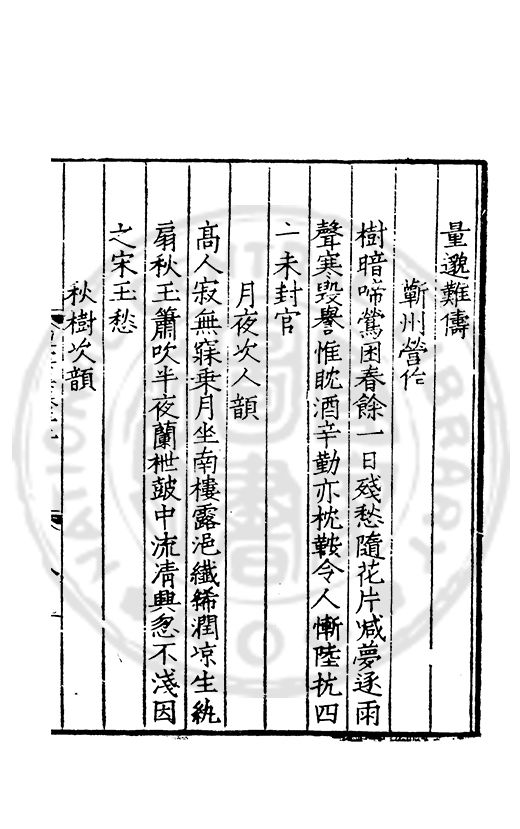 量邈難儔
蘄州營作
樹暗啼鶯困春餘一日殘愁隨花片減夢逐雨
聲寒毀譽惟眈酒辛勤亦枕鞍令人慚陸抗四
二未封官
月夜次人韻
高人寂無寐乗月坐南樓露浥纖絺潤凉生紈
扇秋玉簫吹半夜蘭枻鼓中流清興怱不淺因
之宋玉愁
秋樹次韻